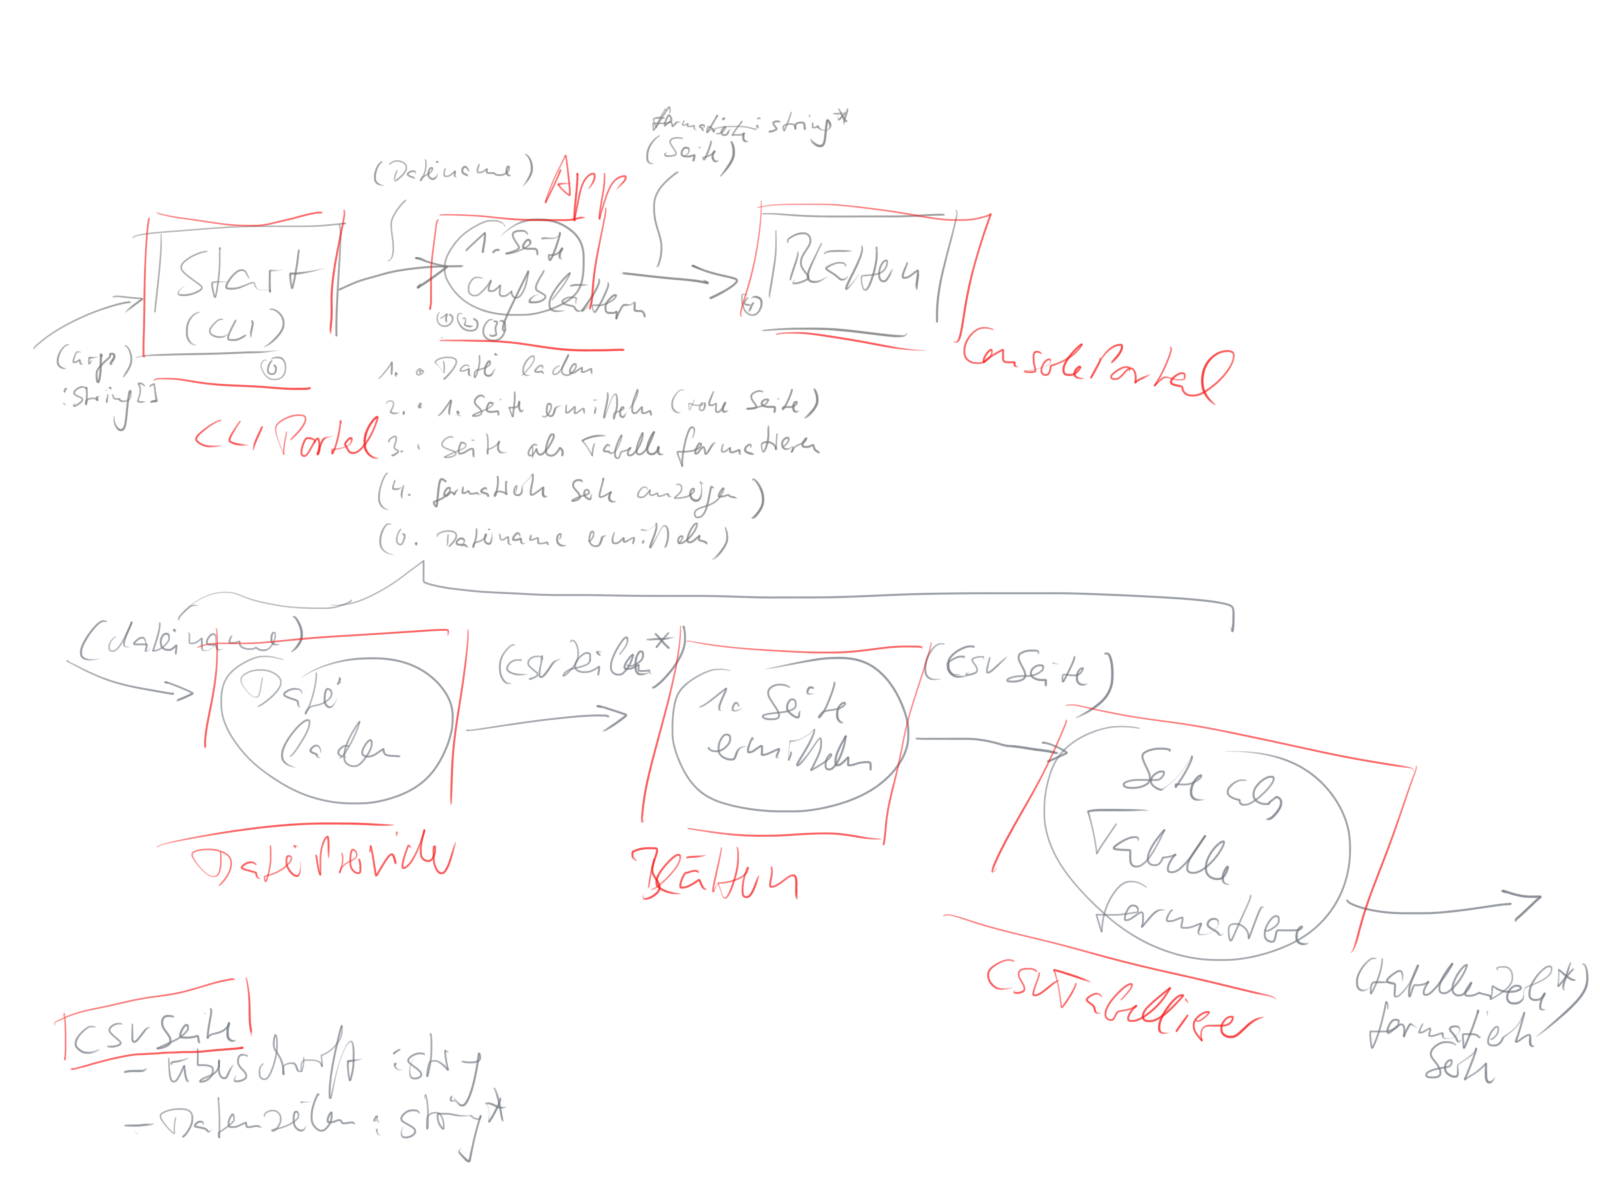 formatierte : string*
(Seite)
(Dateiname)
App
Start
(CLI)
0
1. Seite
aufblättern
1 2 3
4
Blättern
(args)
:String[]
CLI Portal
ConsolePortal
1. • Datei laden
2. • 1. Seite ermitteln (rohe Seite)
3. • Seite als Tabelle formatieren
(4. formatierte Seite anzeigen)
(0. Dateiname ermitteln)
(dateiname)
Datei
laden
DateiProvider
(csvZeile*)
1. Seite
ermitteln
Blättern
(CSVSeite)
Seite als
Tabelle
formatieren
CSVTabellierer
(tabellenzeile*)
formatierte
Seite
CSVSeite
- Überschrift : string
- Datenzeilen : string*